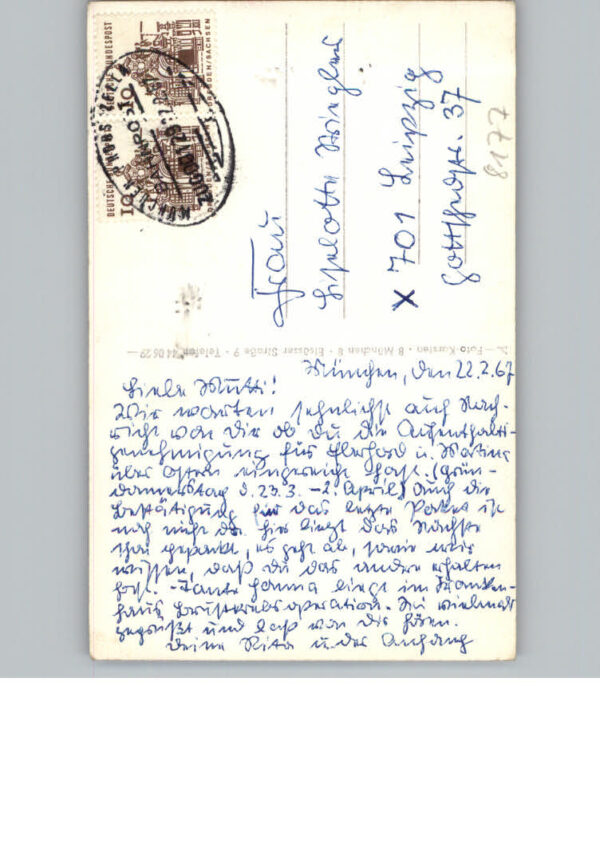 DEUTSCHE BUNDESPOST
DRESDEN/SACHSEN
10
10
Frau
Liselotte
X 701 Leipzig
Gottschedstr. 37
8172
Foto Karsten · 8 München 8 · Elsässer Straße 9 · Telefon 44 06 29
München, den 22.2.67
Liebe Mutti!
Wir warten sehnlichst auf Nach-
richt von Dir ob du die Aufenthalts-
genehmigung für Eberhard u. Martina
über Ostern eingereicht hast. (Grün-
donnerstag d. 23.3. – 2. April) Auch die
Bestätigung für das letzte Paket ist
noch nicht da. Hier liegt das Nächste
schon gepackt, es geht ab, sowie wir
wissen, daß du das andere erhalten
hast. – Tante Hanna liegt im Kranken-
haus, Brustkrebsoperation. Sei vielmals
gegrüßt und laß von dir hören.
Deine Rita u. der Anhang